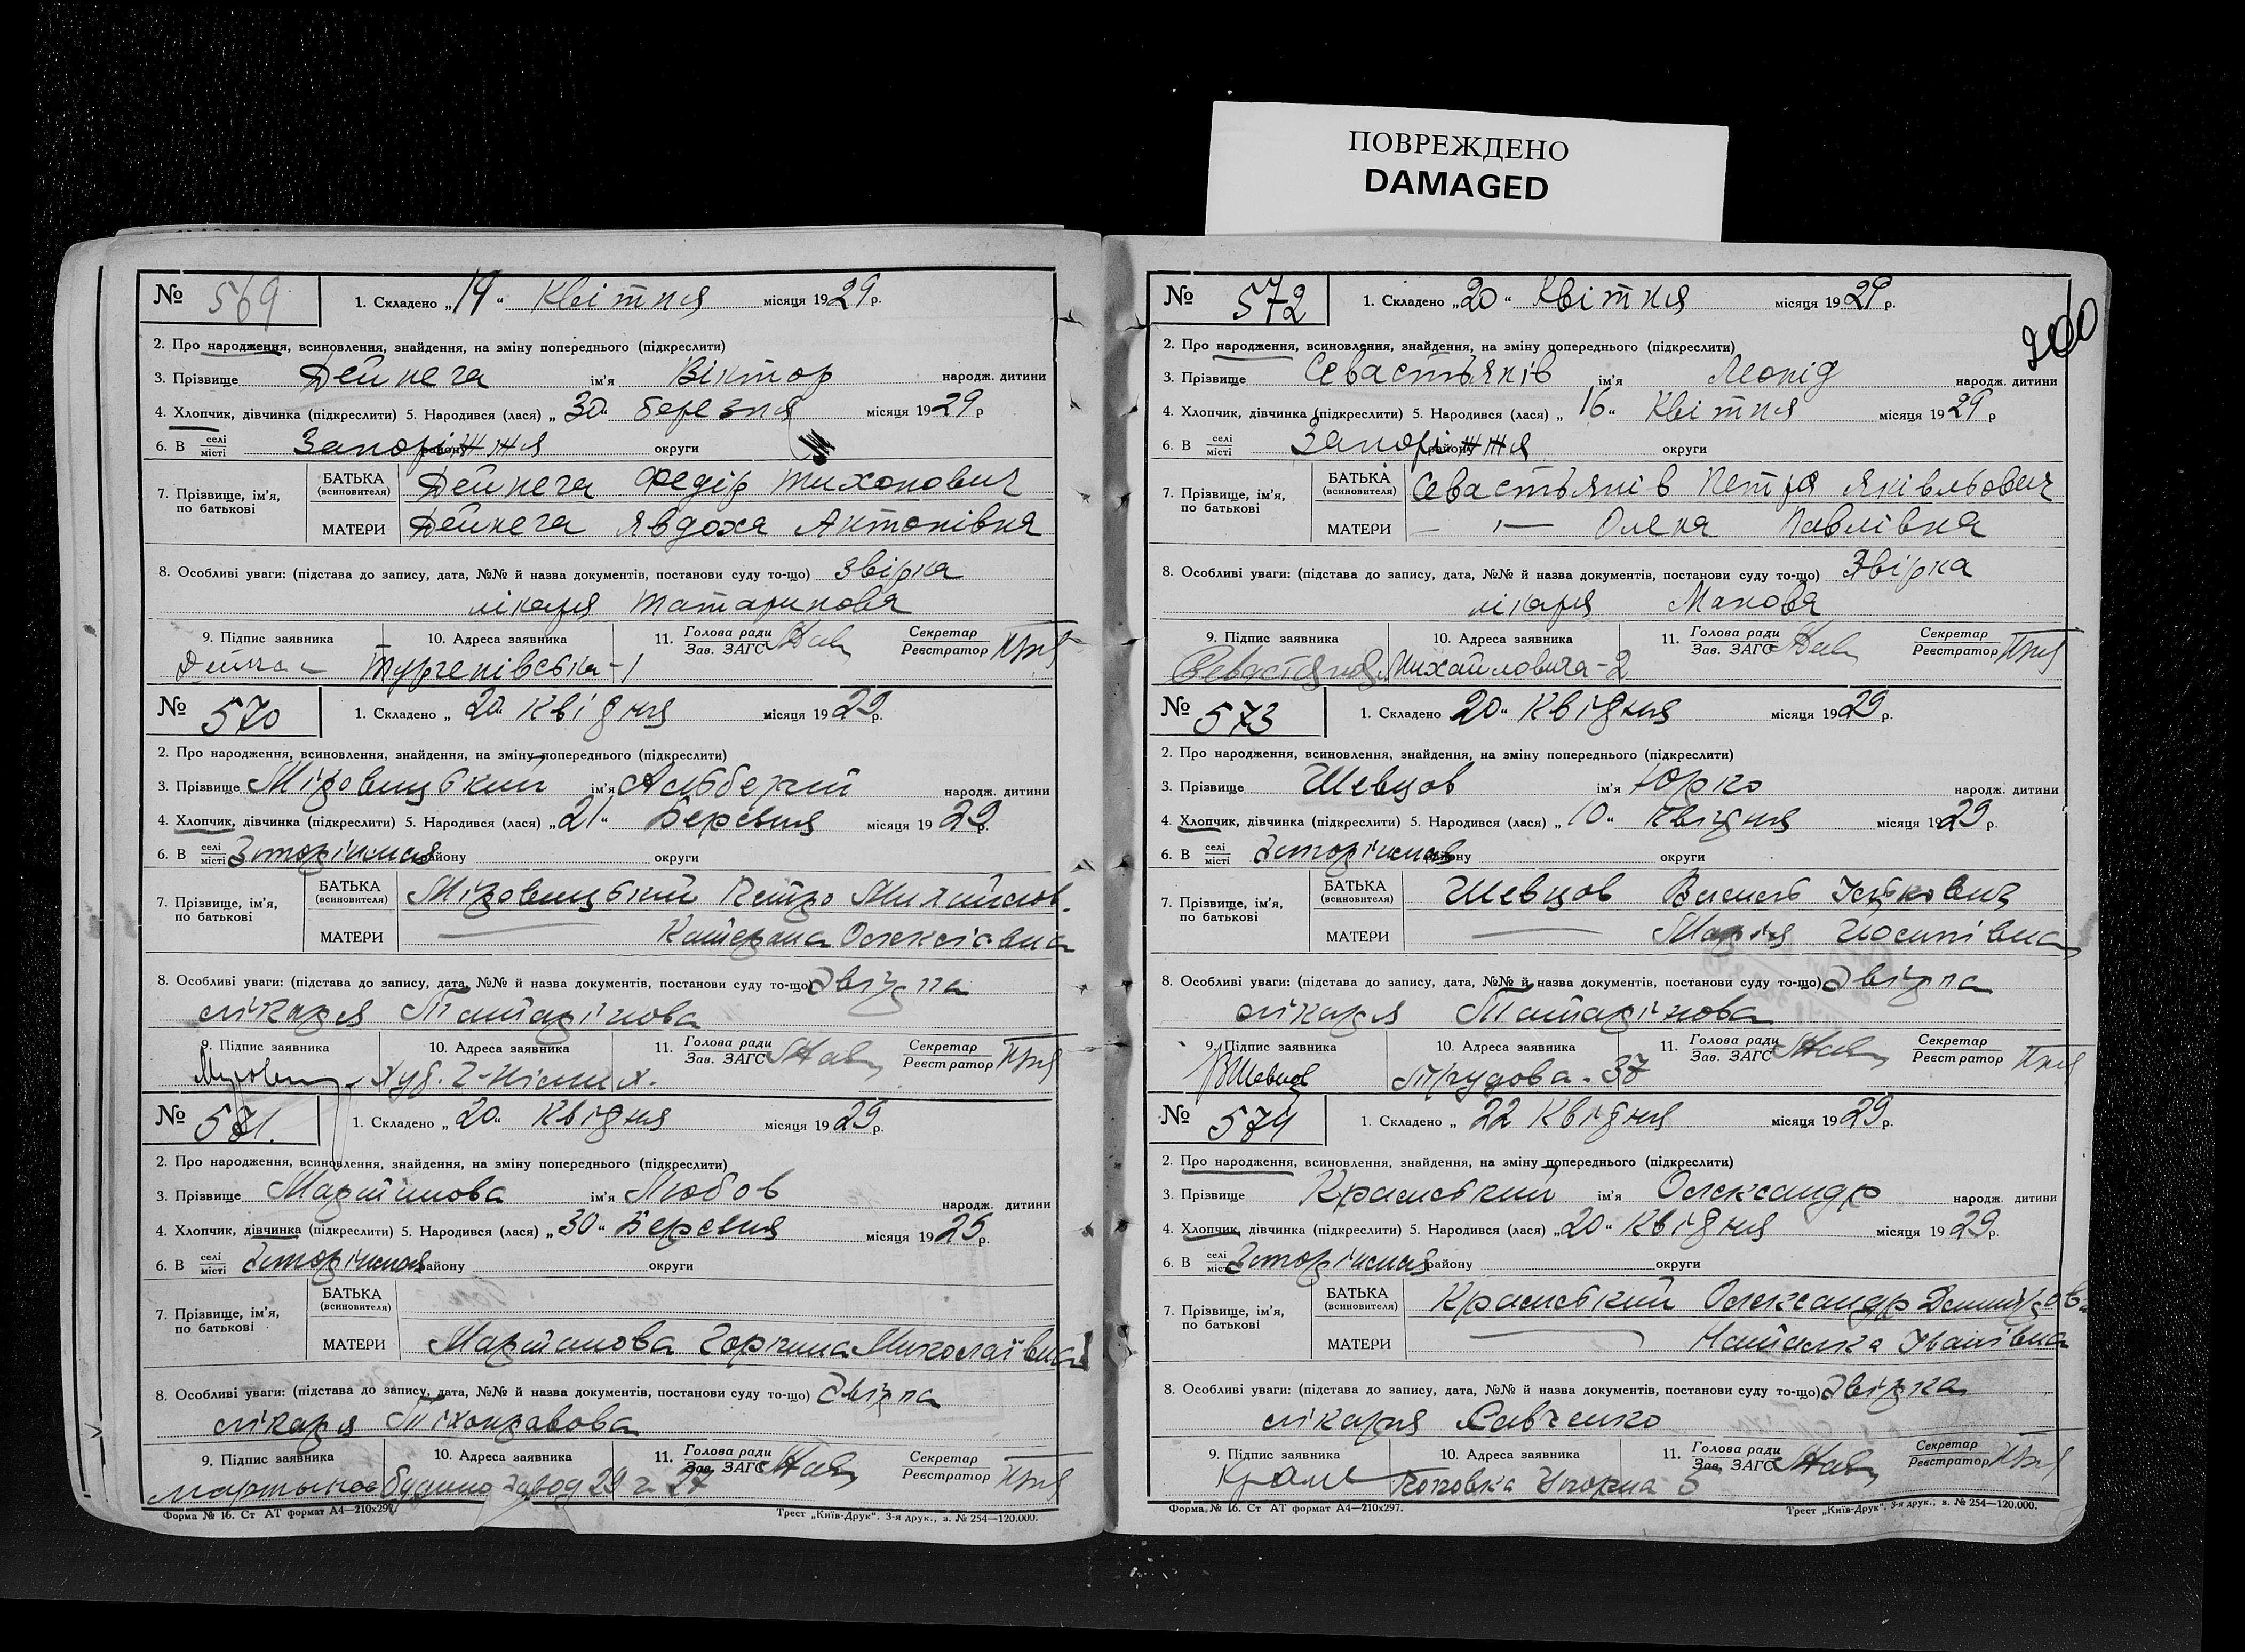 ПОВРЕЖДЕНО
DAMAGED
№ 569 1. Складено „19“ Квітня місяця 1929 р.
2. Про народження, всиновлення, знайдення, на зміну попереднього (підкреслити)
3. Прізвище Дейнега ім'я Віктор народж. дитини
4. Хлопчик, дівчинка (підкреслити) 5. Народився (лася) „30“ березня місяця 1929 р
6. В селі місті Запоріжжя району округи
7. Прізвище, ім'я, по батькові БАТЬКА (всиновителя) Дейнега Федір Тихонович
МАТЕРИ Дейнега Явдоха Антонівна
8. Особливі уваги: (підстава до запису, дата, №№ й назва документів, постанови суду то-що) Звірка
лікаря Татаринова
9. Підпис заявника 10. Адреса заявника 11. Голова ради Зав. ЗАГС Секретар Реєстратор
Тургенівська-1
№ 570 1. Складено „20“ Квідня місяця 1929 р.
2. Про народження, всиновлення, знайдення, на зміну попереднього (підкреслити)
3. Прізвище ім'я народж. дитини
4. Хлопчик, дівчинка (підкреслити) 5. Народився (лася) „21“ Березня місяця 1929 р.
6. В селі місті Запоріжжя району округи
7. Прізвище, ім'я, по батькові БАТЬКА (всиновителя) Петро Михайлов.
МАТЕРИ — Катерина Олексіевна
8. Особливі уваги: (підстава до запису, дата, №№ й назва документів, постанови суду то-що) Звірка
лікаря Татарінова
9. Підпис заявника 10. Адреса заявника 11. Голова ради Зав. ЗАГС Секретар Реєстратор
№ 571. 1. Складено „20“ Квідня місяця 1929 р.
2. Про народження, всиновлення, знайдення, на зміну попереднього (підкреслити)
3. Прізвище Мартинова ім'я Любов народж. дитини
4. Хлопчик, дівчинка (підкреслити) 5. Народився (лася) „30“ Березня місяця 1925 р.
6. В селі місті Запоріжжя району округи
7. Прізвище, ім'я, по батькові БАТЬКА (всиновителя)
МАТЕРИ Мартинова Горпина Миколаївна
8. Особливі уваги: (підстава до запису, дата, №№ й назва документів, постанови суду то-що) Звірка
лікаря Тіхонравова
9. Підпис заявника 10. Адреса заявника 11. Голова ради Зав. ЗАГС Секретар Реєстратор
Мартынова завод 29 27
Форма № 16. Ст АТ формат А4—210х297. Трест „Київ-Друк“. 3-я друк., з. № 254—120.000.
200
№ 572 1. Складено „20“ Квітня місяця 1929 р.
2. Про народження, всиновлення, знайдення, на зміну попереднього (підкреслити)
3. Прізвище Севастьянів ім'я Леонід народж. дитини
4. Хлопчик, дівчинка (підкреслити) 5. Народився (лася) „16“ Квітня місяця 1929 р
6. В селі місті Запоріжжя району округи
7. Прізвище, ім'я, по батькові БАТЬКА (всиновителя) Севастьянів Петро Яківльович
МАТЕРИ —"— Олена Павлівна
8. Особливі уваги: (підстава до запису, дата, №№ й назва документів, постанови суду то-що) Звірка
лікаря Макова
9. Підпис заявника 10. Адреса заявника 11. Голова ради Зав. ЗАГС Секретар Реєстратор
Михайловича-2
№ 573 1. Складено „20“ Квідня місяця 1929 р.
2. Про народження, всиновлення, знайдення, на зміну попереднього (підкреслити)
3. Прізвище Шевцов ім'я Юрко народж. дитини
4. Хлопчик, дівчинка (підкреслити) 5. Народився (лася) „10“ Квідня місяця 1929 р.
6. В селі місті Запоріжжя району округи
7. Прізвище, ім'я, по батькові БАТЬКА (всиновителя) Шевцов Василь
МАТЕРИ — Марія Йосипівна
8. Особливі уваги: (підстава до запису, дата, №№ й назва документів, постанови суду то-що) Звірка
лікаря Татарінова
9. Підпис заявника 10. Адреса заявника 11. Голова ради Зав. ЗАГС Секретар Реєстратор
ВШевцов Трудова-37
№ 574 1. Складено „22 Квідня місяця 1929 р.
2. Про народження, всиновлення, знайдення, на зміну попереднього (підкреслити)
3. Прізвище Крамський ім'я Олександр народж. дитини
4. Хлопчик, дівчинка (підкреслити) 5. Народився (лася) „20“ Квідня місяця 1929 р.
6. В селі місті Запоріжжя району округи
7. Прізвище, ім'я, по батькові БАТЬКА (всиновителя) Крамський Олександр Дмитров.
МАТЕРИ — Наталка Іванівна
8. Особливі уваги: (підстава до запису, дата, №№ й назва документів, постанови суду то-що) Звірка
лікаря Савченко
9. Підпис заявника 10. Адреса заявника 11. Голова ради Зав. ЗАГС Секретар Реєстратор
5
Форма № 16. Ст АТ формат А4—210х297. Трест „Київ-Друк“. 3-я друк., з. № 254—120.000.